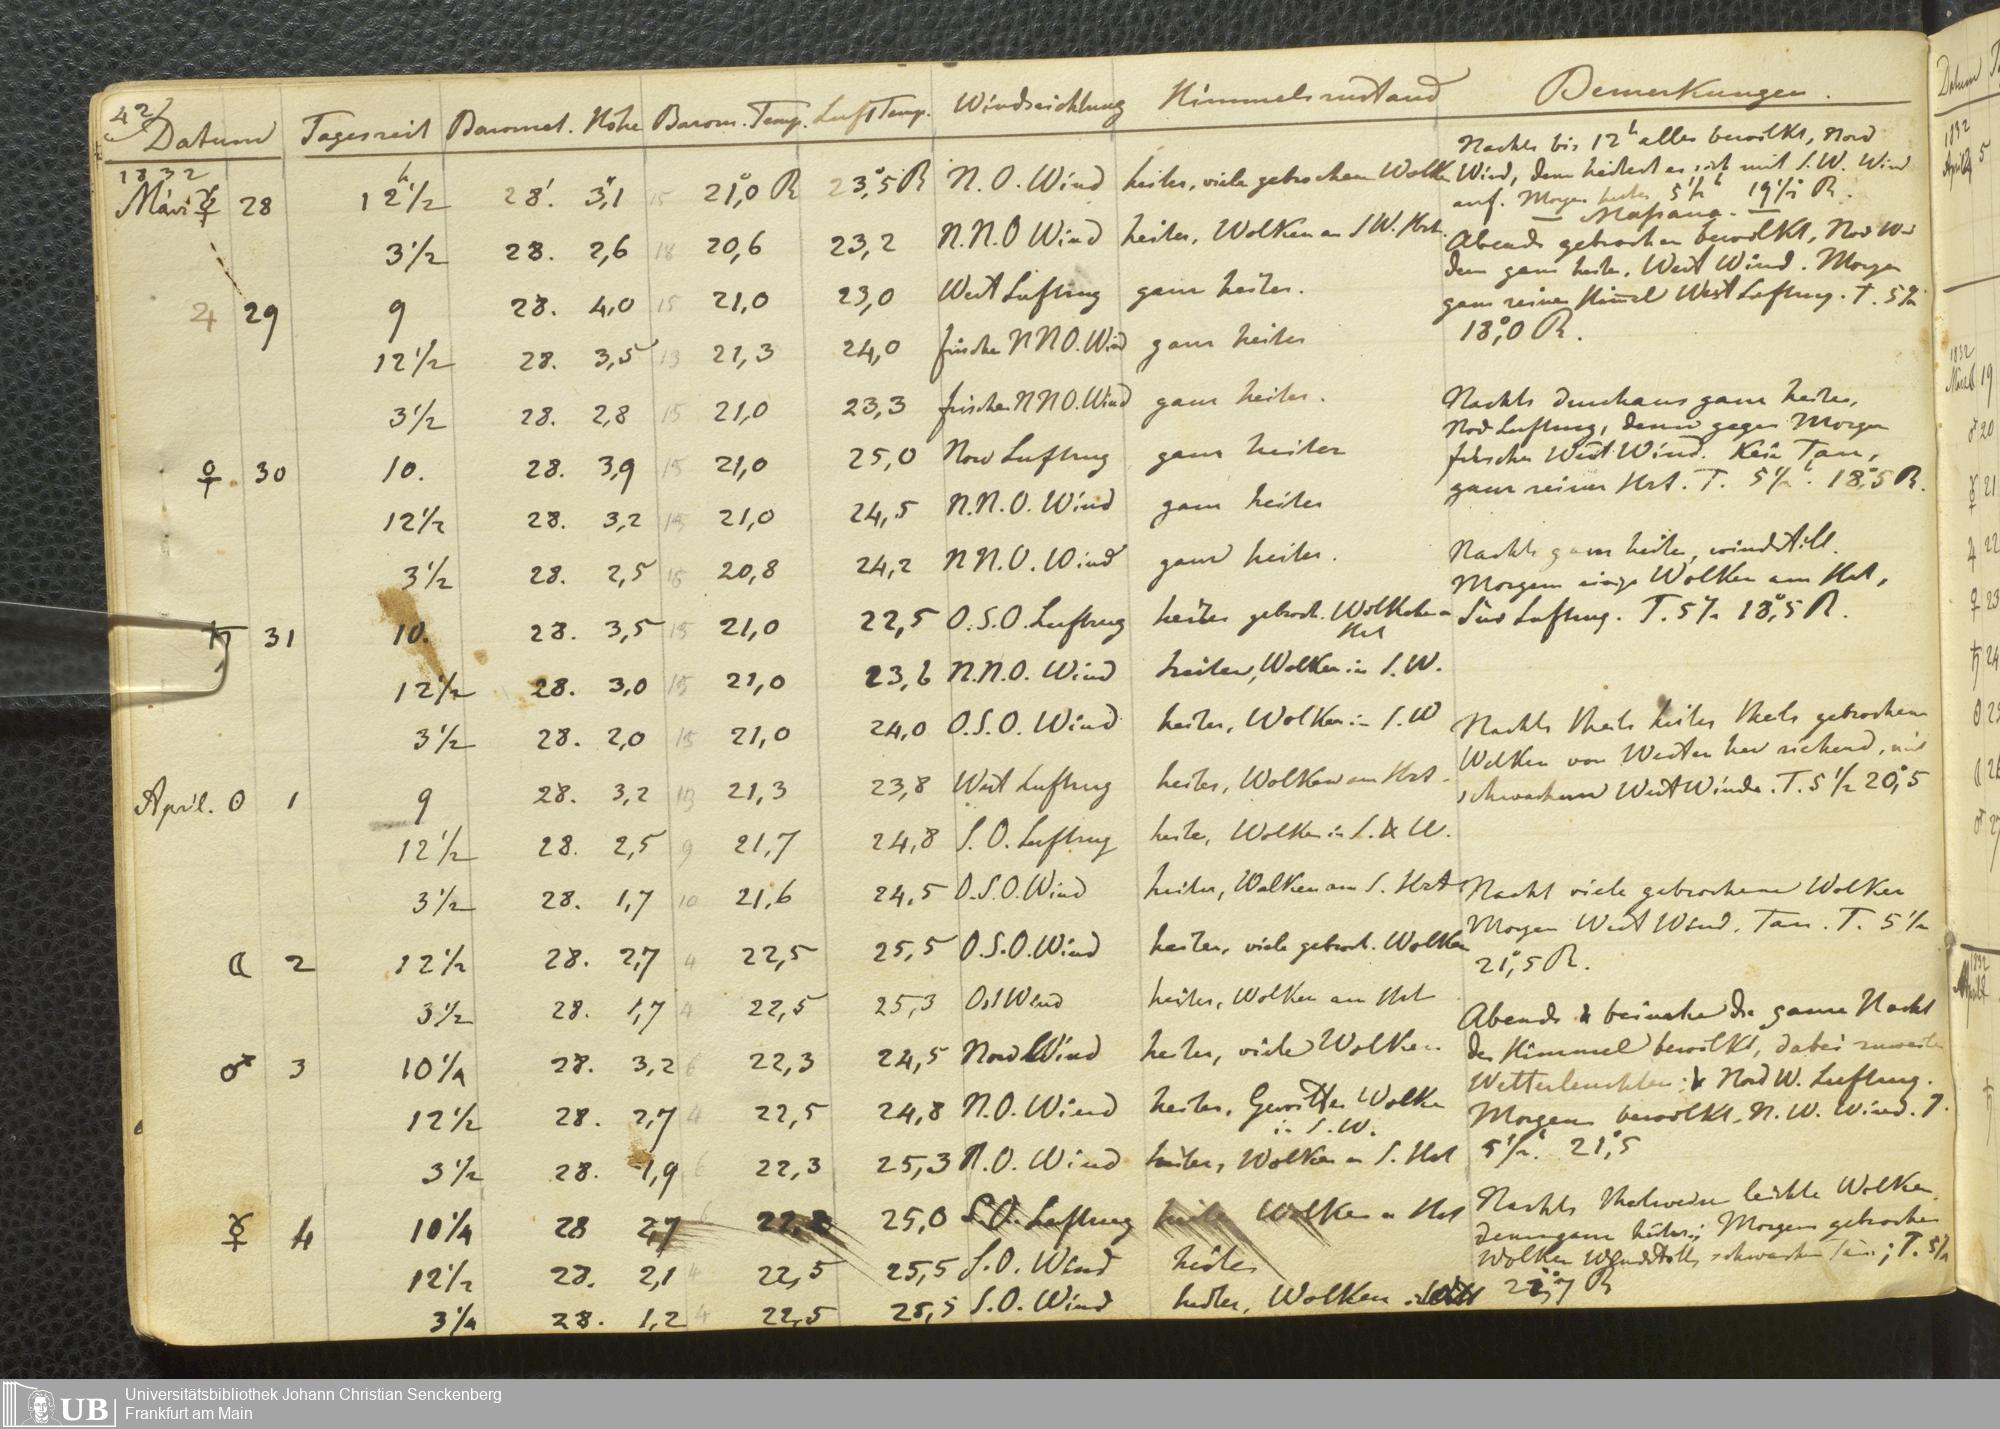 42
Datum Tageszeit Baromet. Höhe Barom. Temp. Luft Temp. Windrichtung Himmelszustand Bemerkungen.
1832
März ☿ 28 12½ h 28.' 3,"1 15 21,°0 R 23,°5 R N. O. Wind heiter, viele gebrochene Wolken
3½ 28. 2,6 18 20,6 23,2 N.N.O Wind heiter, Wolken am SW. Hrt.
♃ 29 9 28. 4,0 15 21,0 23,0 West Luftzug ganz heiter.
12½ 28. 3,5 13 21,3 24,0 frischer NNO. Wind ganz heiter
3½ 28. 2,8 15 21,0 23,3 frischer NNO. Wind ganz heiter.
♀ 30 10. 28. 3,9 15 21,0 25,0 Nord Luftzug ganz heiter
12½ 28. 3,2 15 21,0 24,5 N.N.O. Wind ganz heiter
3½ 28. 2,5 16 20,8 24,2 NN.O. Wind ganz heiter.
♄ 31 10. 28. 3,5 15 21,0 22,5 O.S.O. Luftzug heiter gebroch. Wölkchen
Hrt
12½ 28. 3,0 15 21,0 23,6 N.N.O. Wind heiter, Wolken in S.W.
3½ 28. 2,0 15 21,0 24,0 O.S.O. Wind heiter, Wolken in S.W
April. ☉ 1 9 28. 3,2 13 21,3 23,8 West Luftzug heiter, Wolken am Hrt.
12½ 28. 2,5 9 21,7 24,8 S.O. Luftzug heiter, Wolken in S. & W.
3½ 28. 1,7 10 21,6 24,5 O.S.O. Wind heiter, Wolken am S. Hrt
☾ 2 12½ 28. 2,7 4 22,5 25,5 O.S.O. Wind heiter, viele gebroch. Wolken
3½ 28. 1,7 4 22,5 25,3 Ost Wind heiter, Wolken am Hrt
♂ 3 10½ 28. 3,2 6 22,3 24,5 Nord Wind heiter, viele Wolken.
12½ 28. 2,7 4 22,5 24,8 N.O. Wind heiter, Gewitter Wolken
in S.W.
3½ 28. 1,9 6 22,3 25,3 N.O. Wind heiter, Wolken am S. Hrt
☿ 4 10½ 28 2,7 6 25,0 S.O. Luftzug heiter Wolken am Hrt
12½ 28. 2,1 4 22,5 25,5 S.O. Wind heiter
3½ 28. 1,2 4 22,5 25,5 S.O. Wind heiter, Wolken
Nachts bis 12h alles bewölkt, Nord
Wind, dann heitert es sich mit S.W. Wind
auf. Morgen heiter 5½h 19½° R.
— Massaua. —
Abends gebrochen bewölkt, Nord Wind
dann ganz heiter, West Wind. Morgen
ganz reiner Himmel West Luftzug. T. 5½
18,°0 R.
Nachts durchaus ganz heiter,
Nord Luftzug, dann gegen Morgen
frischer West Wind. Kein Tau,
ganz reiner Hrt. T. 5½h. 18,°5 R.
Nachts ganz heiter, windstill.
Morgens einige Wolken am Hrt,
Süd Luftzug. T. 5½ 18,°5 R.
Nachts theils heiter theils gebrochene
Wolken von Westen her ziehend, mit
schwachem West Winde. T. 5½ 20,°5
Nacht viele gebrochene Wolken
Morgen West Wind. Tau. T. 5½
21,°5 R.
Abends & beinahe die ganze Nacht
der Himmel bewölkt, dabei zuweilen
Wetterleuchten & Nord W. Luftzug.
Morgens bewölkt, N. W. Wind. T.
5½h. 21,°5
Nachts theilweise leichte Wolken
dann ganz heiter; Morgens gebrochen
Wolken Windstille schwacher Tau; T. 5½
R
Datum
1832
April 5
1832
März 19
♂ 20
☿ 21
♃ 22
♀ 23
♄ 24
☉ 25
☾ 26
♂ 27
1832
April
UB Universitätsbibliothek Johann Christian Senckenberg
Frankfurt am Main